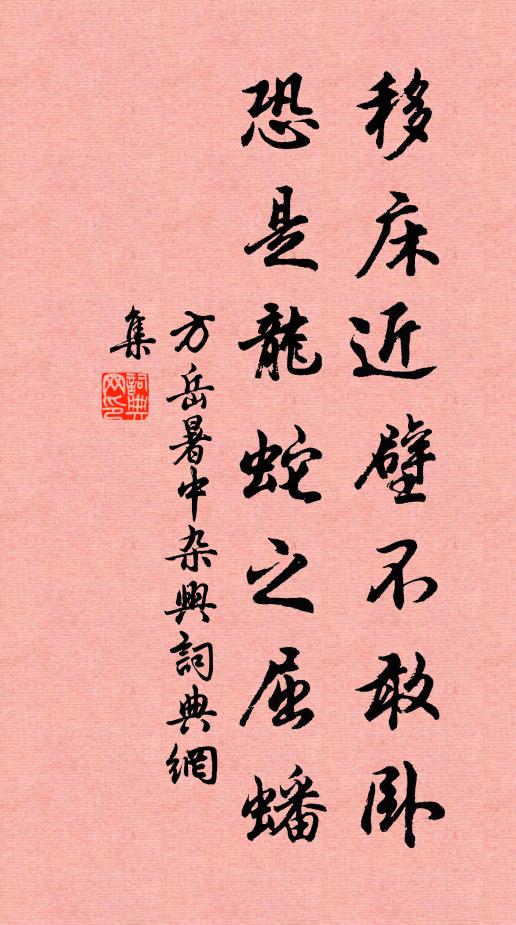 移床近壁不敢卧
恐是龍蛇之屈蟠
方岳暑中杂興詞典網
集
詞典网印